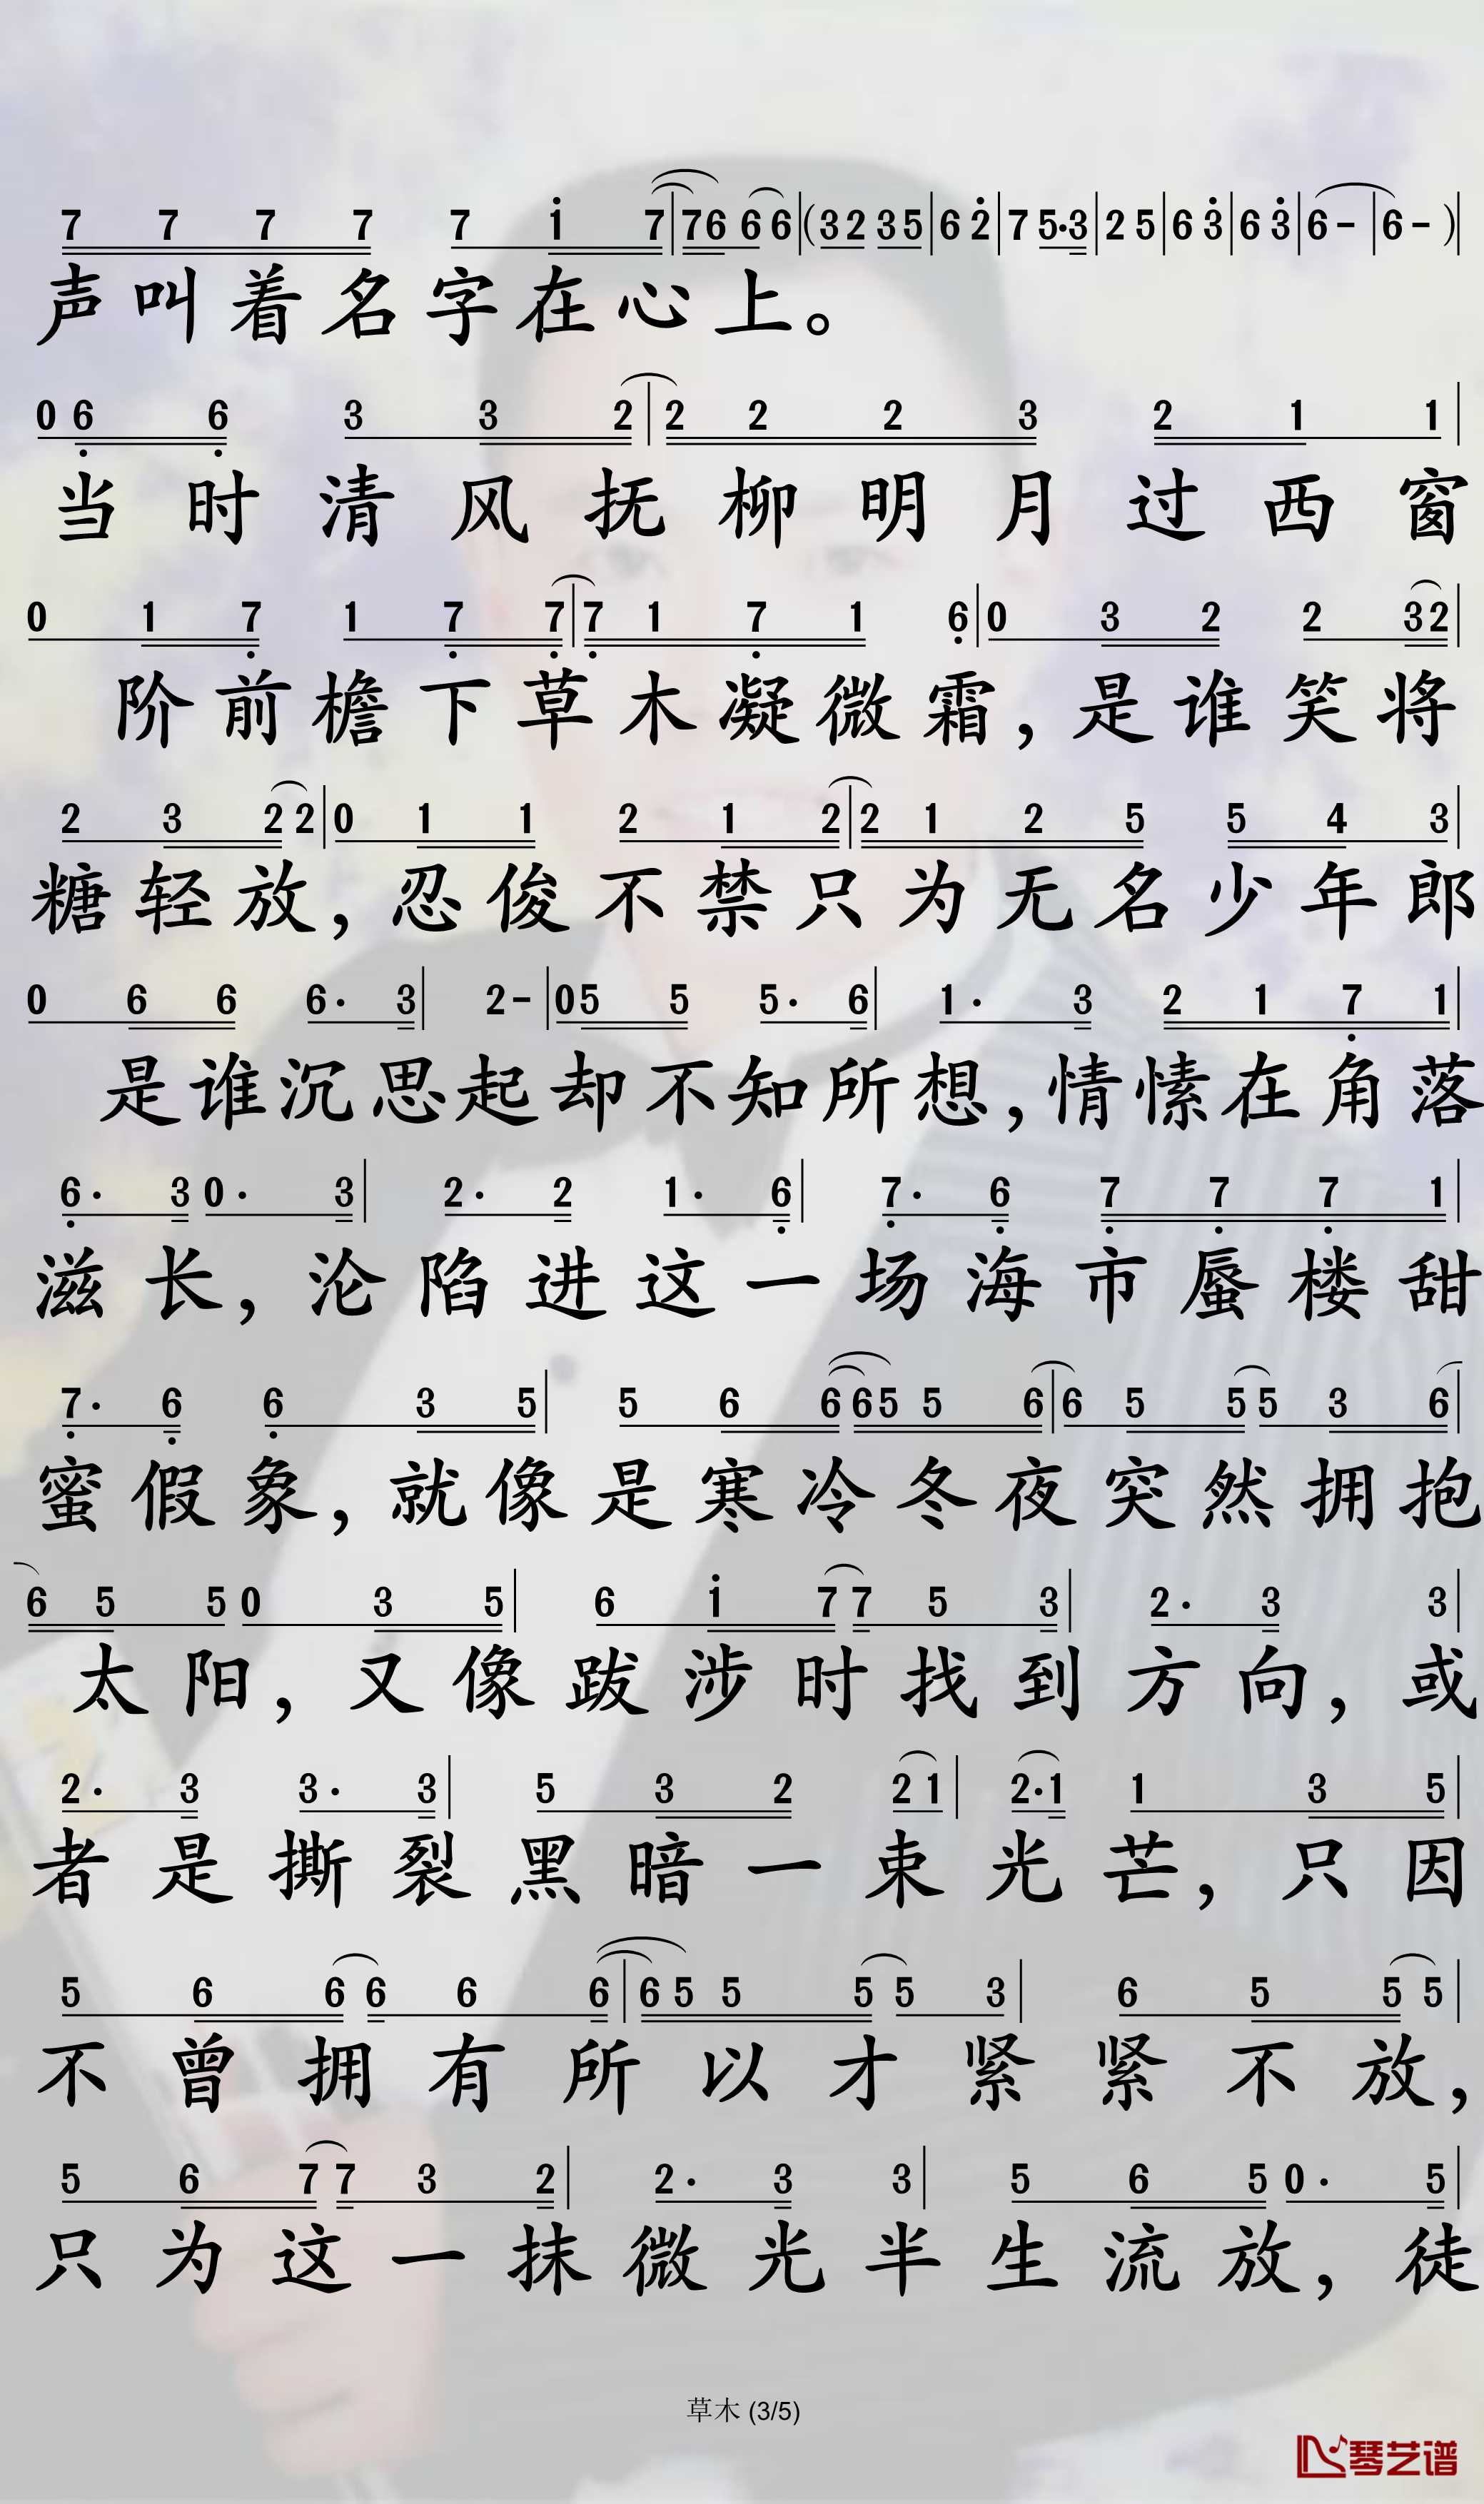 7 7 7 7 7 1 7 | 76 6 6 | (32 35 | 6 2 | 7 5·3 | 2 5 | 6 3 | 6 3 | 6 - | 6 - ) |
声叫着名字在心上。
0 6 6 3 3 2 | 2 2 2 3 2 1 1 |
当时清风抚柳明月过西窗
0 1 7 1 7 7 | 7 1 7 1 6 | 0 3 2 2 32 |
阶前檐下草木凝微霜,是谁笑将
2 3 2 2 | 0 1 1 2 1 2 | 2 1 2 5 5 4 3 |
糖轻放,忍俊不禁只为无名少年郎
0 6 6 6· 3 | 2 - | 0 5 5 5· 6 | 1· 3 2 1 7 1 |
是谁沉思起却不知所想,情愫在角落
6· 3 0· 3 | 2· 2 1· 6 | 7· 6 7 7 7 1 |
滋长,沦陷进这一场海市蜃楼甜
7· 6 6 3 5 | 5 6 6 65 5 6 | 6 5 5 5 3 6 |
蜜假象,就像是寒冷冬夜突然拥抱
6 5 5 0 3 5 | 6 1 7 7 5 3 | 2· 3 3 |
太阳,又像跋涉时找到方向,或
2· 3 3· 3 | 5 3 2 2 1 | 2·1 1 3 5 |
者是撕裂黑暗一束光芒,只因
5 6 6 6 6 6 | 6 5 5 5 5 3 | 6 5 5 5 |
不曾拥有所以才紧紧不放,
5 6 7 7 3 2 | 2· 3 3 | 5 6 5 0· 5 |
只为这一抹微光半生流放,徒
草木 (3/5)
琴艺谱